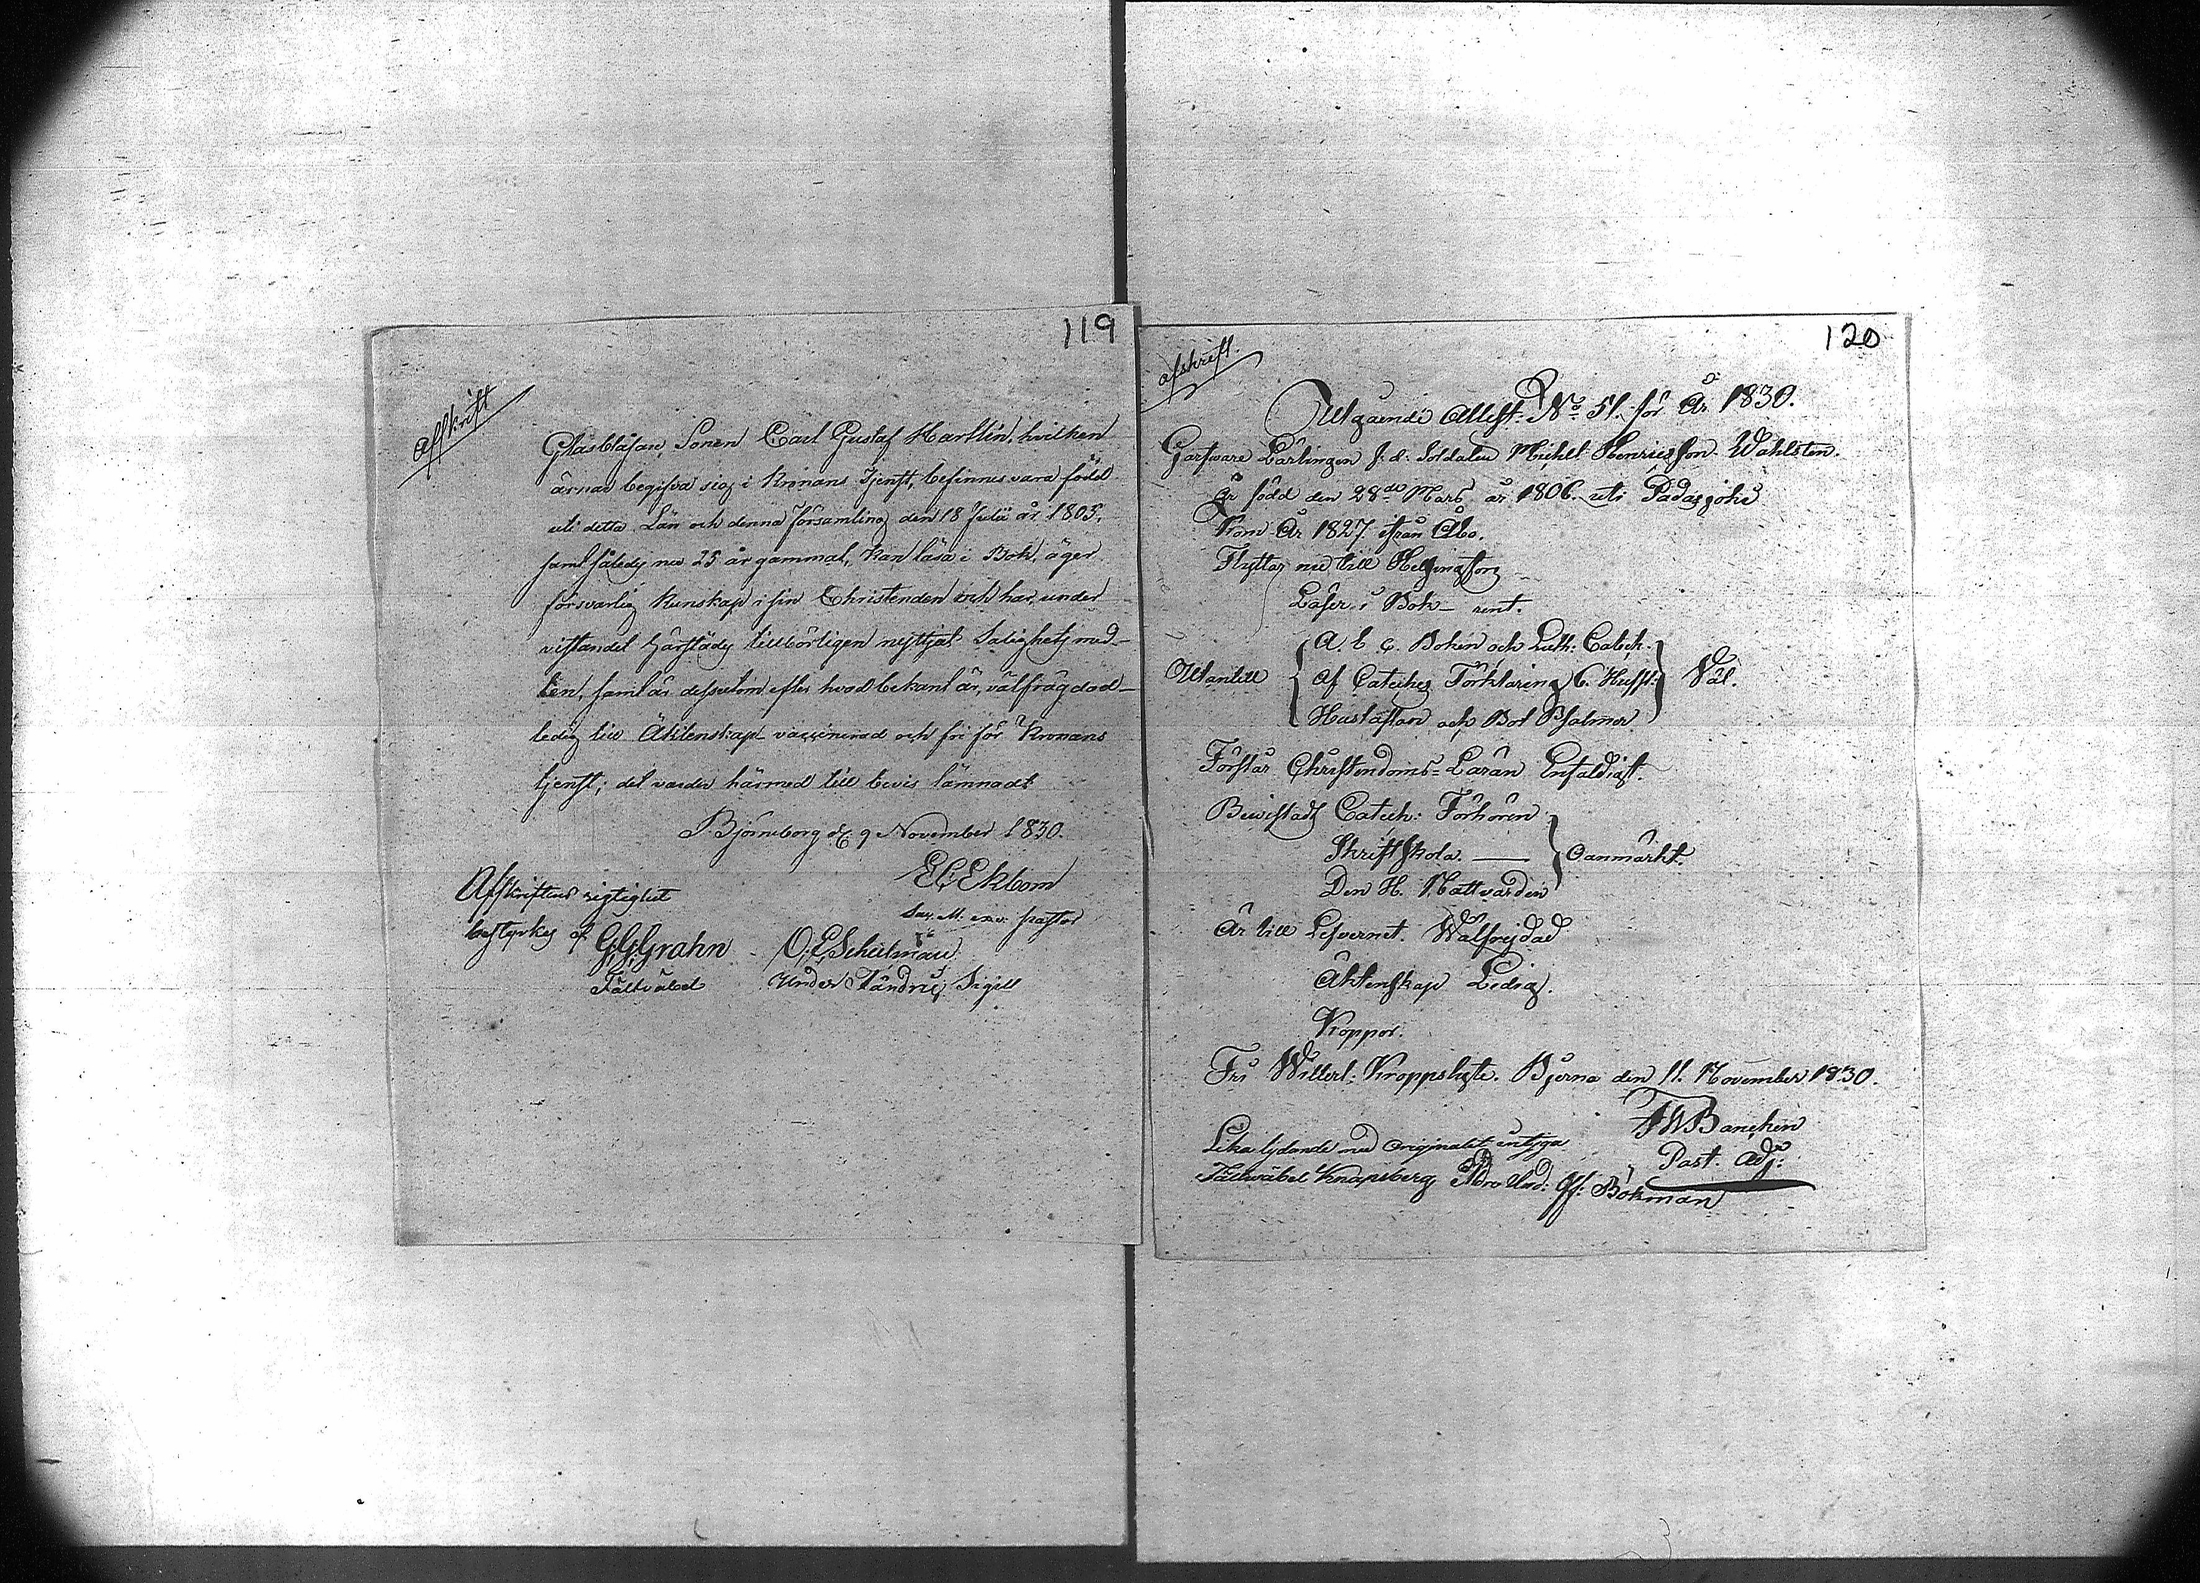 119
Afskrift
Glasblåsan, Sonen Carl Gustaf Hartlin, hvilken
ärnar begifva sig i Kronans Tjenst, befinnes vara född
uti detta Län och denna församling den 18 Julii år 1805,
samt således nu 25 år gammal, kan läsa i Bok, äger
försvarlig kunskap i sin Christendom och har, under
vistandet härstädes tillbörligen nyttjat Salighets med-
len, samt är dessutom efter hvad bekant är, välfrägdad –
ledig till Äktenskap – vaccinerad och fri för Kronans
tjenst; det varder härmed till bevis lämnadt
Björneborg d. 9 November 1830.
E. C. Ekbom
Sac. M. exv: pastor
Afskriftens rigtighet
bestyrkes af
G. G. Grahn
Fältväbel
O. E. Scheilman
Under Sigill
120
afskrift.
Utgående Attest. No 51. för År 1830.
Garfvare Lärlingen f: d: Soldaten Michel Henricsson Wahlsten.
Är född den 28de Mars år 1806 uti Padasjoki
Kom År 1827 ifrån Åbo.
Flyttar nu till Helsingfors
Läser i Bok – rent.
Utantill
A. b. c. Boken och Luth: Catech.
Af Cateches Förklaring 6. Hufst:
Hustaflan och Bot Psalmer
Väl.
Förstår Christendoms-Läran Enfaldigt.
Bewistadt Catech: Förhören
Skriftskola. —
Den H. Nattvarden
Oanmärkt.
Är till Lefvernet. Wälfrejdad
Äktenskap Ledig.
Koppor.
Fri Willert: Kroppslyte. Bjerno den 11. November 1830.
F W Banchin
Past. Adj:
Lika lydande med Originalet intyga
Fältwäbel Knapsberg Und: Off: Bökman